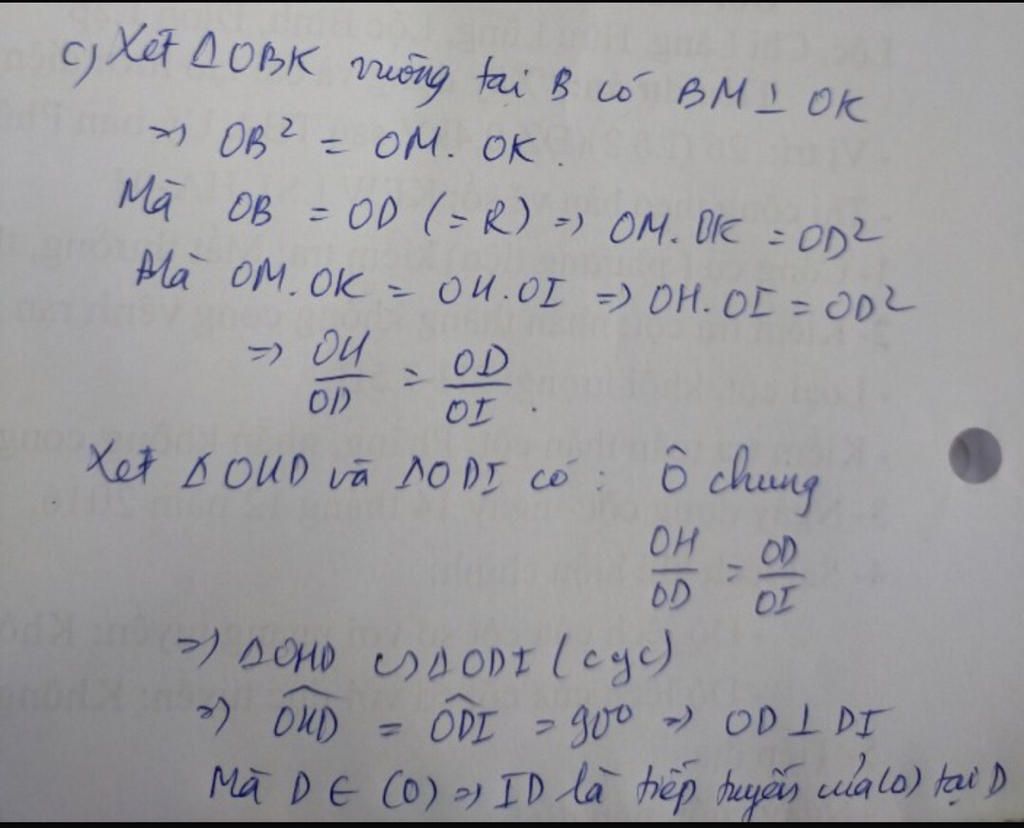 c) Xét ΔOBK vuông tại B có BM ⊥ OK
=> OB² = OM. OK.
Mà OB = OD (=R) => OM. OK = OD²
Mà OM. OK = OH.OI => OH. OI = OD²
=> OH/OD = OD/OI.
Xét ΔOHD và ΔODI có: Ô chung
OH/OD = OD/OI
=> ΔOHD ∽ ΔODI (cgc)
=> OHD = ODI = 90° => OD ⊥ DI
Mà D ∈ (O) => ID là tiếp tuyến của (O) tại D